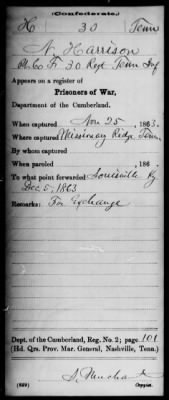 (Confederate.)
H 30 Tenn
N. Harrison
Co. F. 30 Regt Tenn Inf
Appears on a register of
Prisoners of War,
Department of the Cumberland.
When captured Nov 25, 1863.
Where captured Missionary Ridge Tenn
By whom captured
When paroled , 186 .
To what point forwarded Louisville Ky
Dec 5, 1863
Remarks: For Exchange
Dept. of the Cumberland, Reg. No. 2; page 101
(Hd. Qrs. Prov. Mar. General, Nashville, Tenn.)
(639) Copyist.